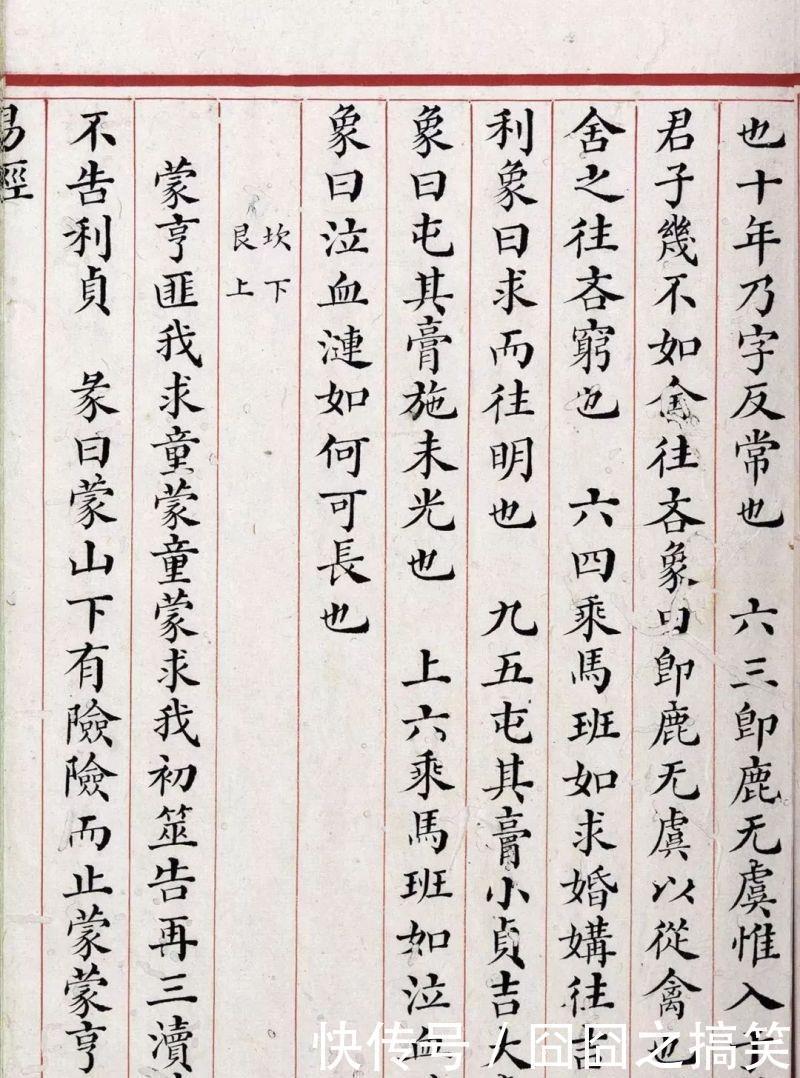 也十年乃字反常也　六三即鹿无虞惟入于
君子幾不如舍往吝象曰即鹿无虞以從禽也
舍之往吝窮也　六四乘馬班如求婚媾往吉
利象曰求而往明也　九五屯其膏小貞吉大
象曰屯其膏施未光也　上六乘馬班如泣血
象曰泣血漣如何可長也
坎下
艮上
蒙亨匪我求童蒙童蒙求我初筮告再三瀆
不告利貞　彖曰蒙山下有險險而止蒙蒙亨
易經
快传号 / 囧囧之搞笑